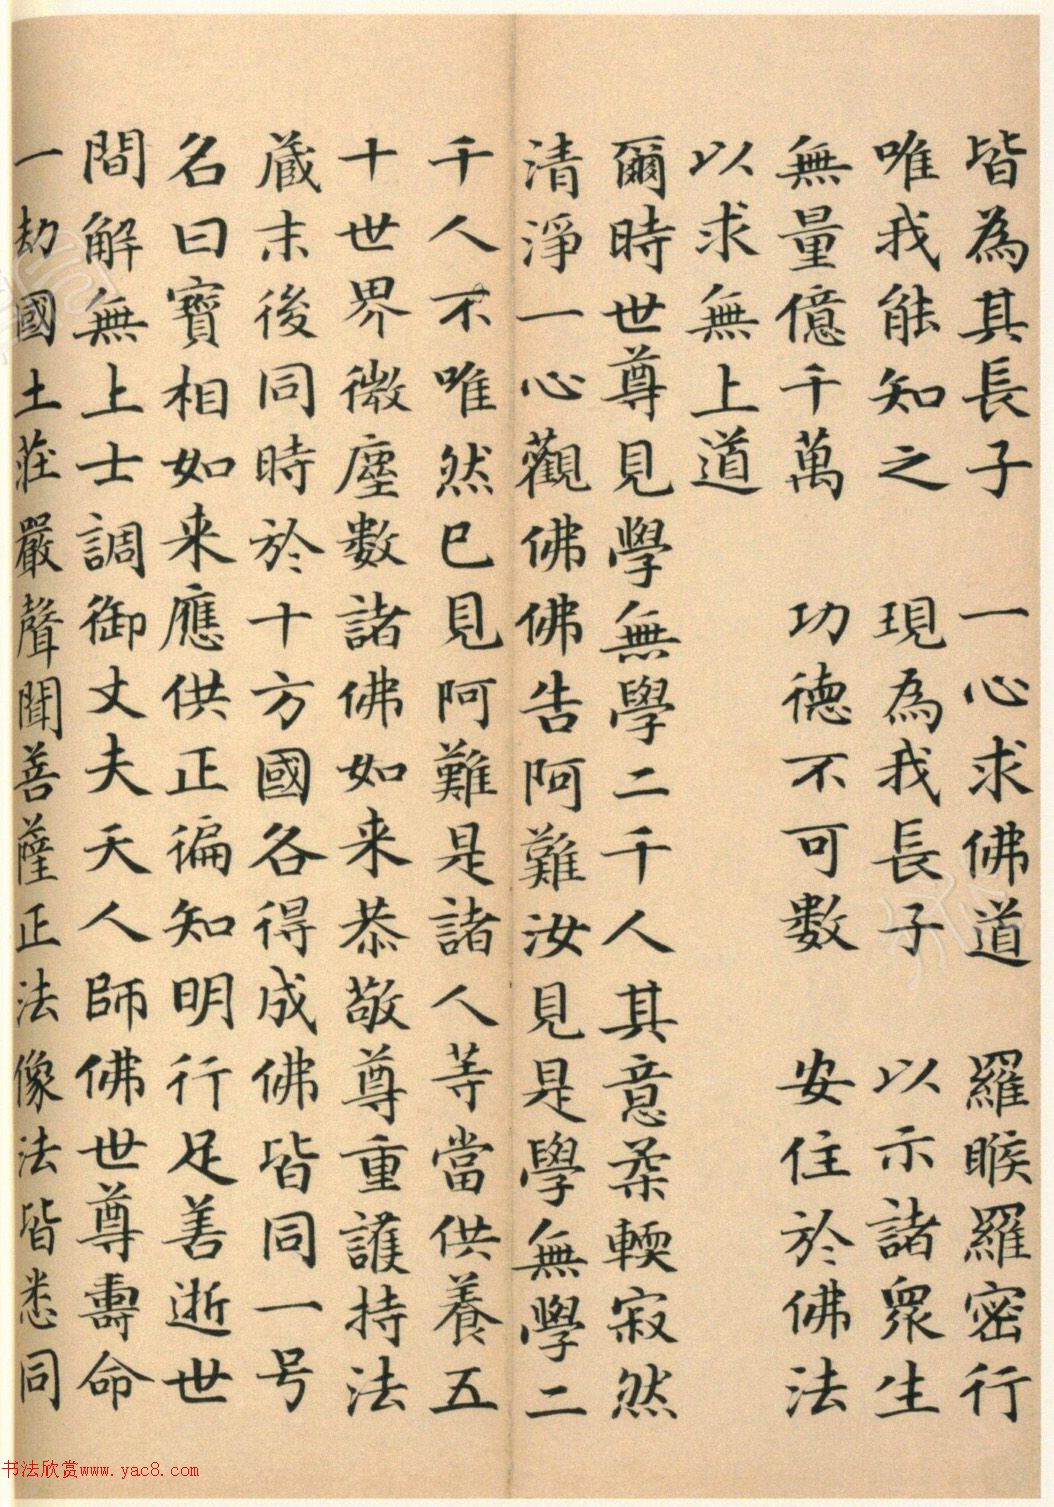 皆為其長子　一心求佛道　羅睺羅密行
唯我能知之　現為我長子　以示諸眾生
無量億千萬　功德不可數　安住於佛法
以求無上道
爾時世尊見學無學二千人其意柔輭寂然
清淨一心觀佛佛告阿難汝見是學無學二
千人不唯然已見阿難是諸人等當供養五
十世界微塵數諸佛如来恭敬尊重護持法
蔵末後同時於十方國各得成佛皆同一号
名曰寶相如来應供正徧知明行足善逝世
間解無上士調御丈夫天人師佛世尊壽命
一劫國土莊嚴聲聞菩薩正法像法皆悉同
书法欣赏www.yac8.com